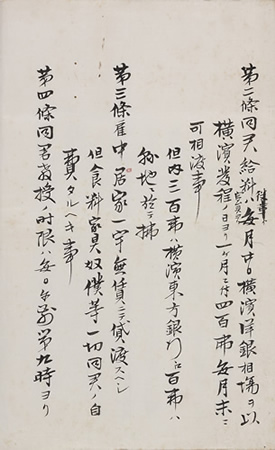 第二條同君給料毎月中ヨリ横濱洋銀相塲ヲ以
横濱発程ノ日ヨリ一ケ月ニ付四百弗毎月末ニ
可相渡事
但内三百弗ハ横濱東方銀行ニ百弗ハ
於テ拂
第三條雇中居家一宇無賃ニテ貸渡スヘシ
但食料家具奴僕等一切同君ノ自
費タルヘキ事
第四條同君教授ノ時限ハ毎日午前第九時ヨリ